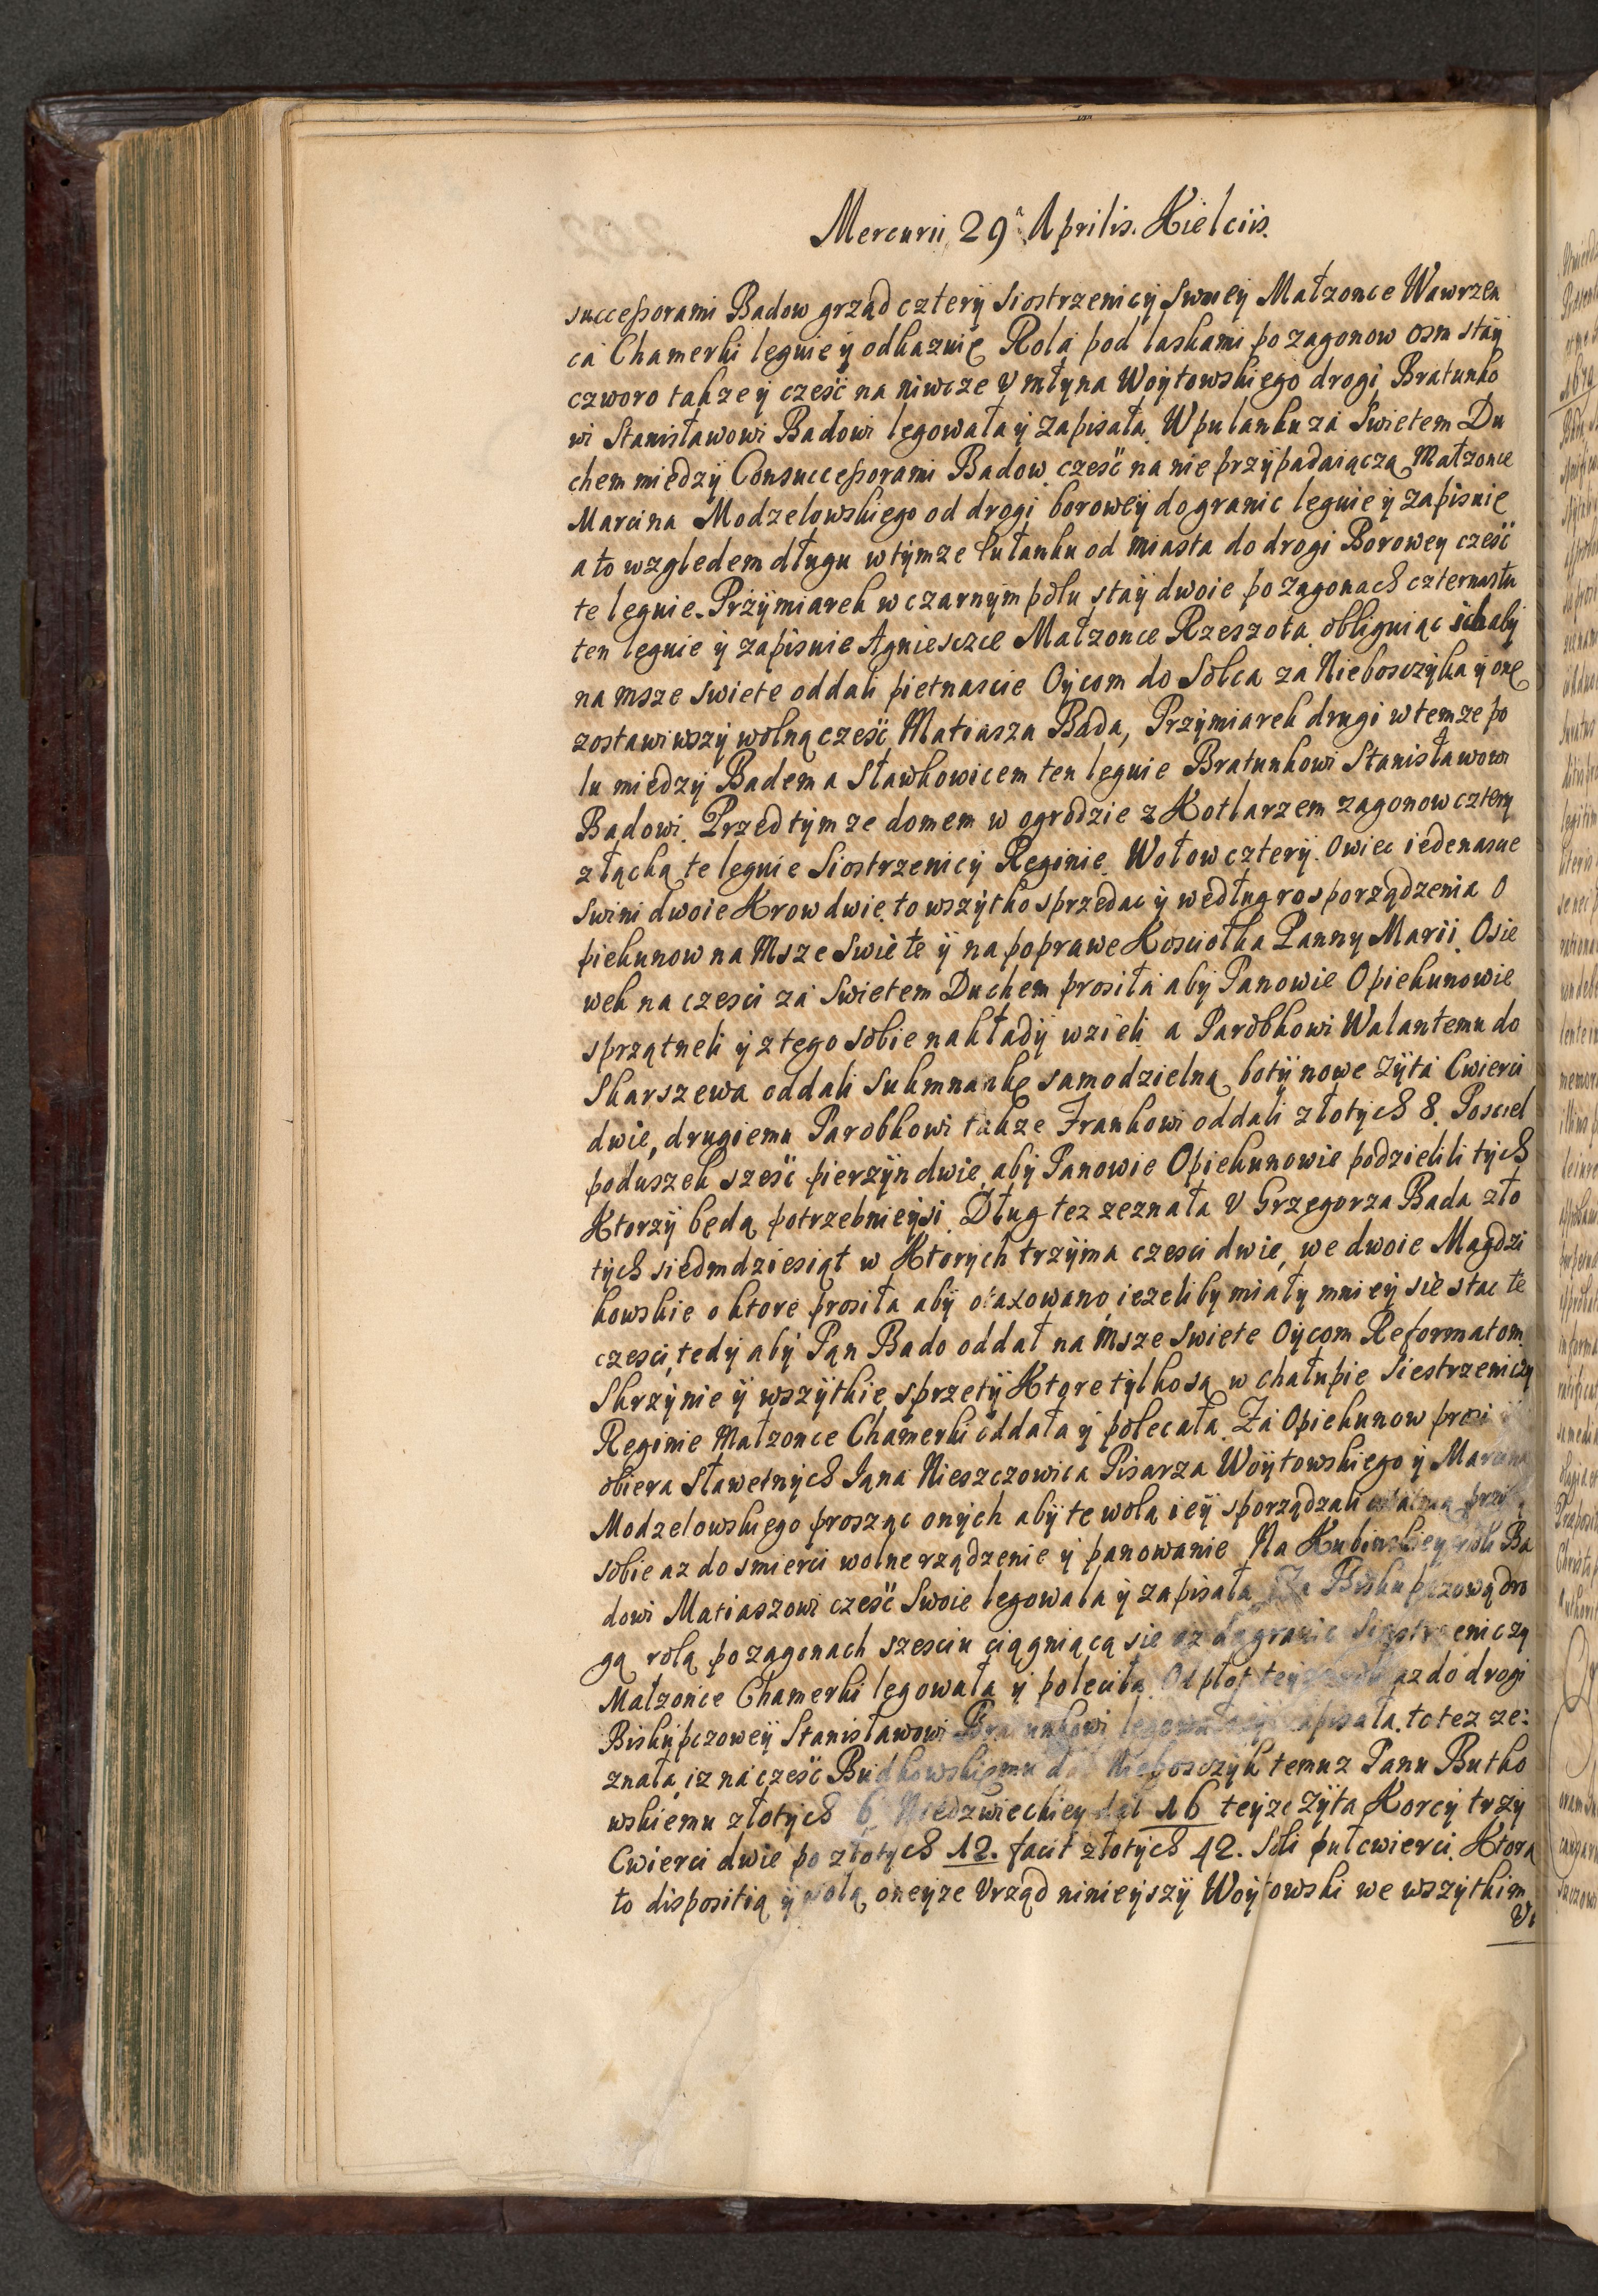 Mercurii 29ª Aprilis. Kielciis.
successorami Badow grząd cztery Siostrzenicÿ Swueÿ Małzonce Wawrzen
ca Chamerki leguie ÿ odkazuię Rola pod laskami po zagonow osm staÿ
czworo takze ÿ cześć na niwcze V młyna Woytowskiego drogi Bratunko
wi Stanisławowi Badowi legowała ÿ zapisała. W pułanku za Swietem Du
chem miedzÿ Consuccessorami Badow cześć na nie przÿpadaiącza Małzonce
Marcina Modzelowskiego od drogi boroweÿ do granic leguie ÿ zapisuię
a to wzgledem długu w tÿmze Pułanku od Miasta do drogi Borowey cześć
te leguie. Przÿmiarek w czarnÿm polu staÿ dwoie po zagonach czternastu
ten leguie ÿ zapisuie Agniesczce Małzonce Rzeszota obliguiąc ich abÿ
na msze swiete oddali pietnascie Oÿcom do Solca za Nieboszczÿka ÿ onę
zostawiwszÿ wolną cześć Matiasza Bada, Przÿmiarek drugi w temze po
lu miedzÿ Badem a Sławkowicem ten leguie Bratunkowi Stanisławowi
Badowi. Przed tÿmze domem w ogrodzie z Kotlarzem zagonow cztery
z łącką te leguie Siostrzenicÿ Reginie. Wołow czterÿ. Owiec iedenascie
Swini dwoie Krow dwie to wszÿtko sprzedac ÿ według rosporządzenia O
piekunow na Msze Swiete ÿ na poprawe Kosciołka Panny Marii. Osie
wek na czesci za Swietem Duchem prosiła abÿ Panowie Opiekunowie
sprzątneli ÿ z tego sobie nakładÿ wzieli a Parobkowi Walantemu do
Skarszewa oddali Sukmankę samodzielną botÿ nowe Zÿta Cwierci
dwie, drugiemu Parobkowi takze Frankowi oddali złotych 8. Posciel
poduszek sześć pierzÿn dwie abÿ Panowie Opiekunowie podzielili tych
Ktorzÿ będą potrzebnieÿsi. Dług tez zeznała V Grzegorza Bada zło
tÿch siedmdziesiąt w Ktorÿch trzÿma czesci dwie, we dwoie Magdzi
kowskie o ktore prosiła abÿ otaxowano iezeliby miały mnieÿ sie stac te
czesci, tedÿ abÿ Pan Bado oddał na Msze Swiete Oÿcom Reformatom
Skrzÿnie ÿ wszÿtkie sprzetÿ Ktore tÿlko są w chałupie Siestrzeniczÿ
Reginie Małzonce Chamerki oddała ÿ polecała. Za Opiekunow prosi ÿ
obiera Sławetnÿch Jana Nieszczowica Pisarza Woÿtowskiego ÿ Marcina
Modzelowskiego prosząc onÿch abÿ te wolą ieÿ sporządzali przÿ
sobie az do smierci wolne rządzenie ÿ panowanie. Na Kubinskiey roli Ba
dowi Matiaszowi cześć Swoie legowała ÿ zapisała Za Biskupczową dro
gą rolą po zagonach szesciu ciągniącą sie az do granic Siestrzeniczą
Małzonce Chamerki legowała ÿ poleciła. Od płot teÿze roli az do drogi
Biskupczoweÿ Stanisławowi Bratunkowi legowała ÿ zapisała. to tez ze:
znała iz na cześć Budkowskiemu dał Nieboszczÿk temuz Panu Butko
wskiemu złotÿch 6 Niedzwieckiey dał 16 teÿze Zÿta Korcÿ trzÿ
Cwierci dwie po złotÿch 12. facit złotÿch 42. Soli pułcwierci. Ktora
to dispositią ÿ wolą oneÿze Vrząd ninieÿszÿ Woÿtowski we wszÿtkim